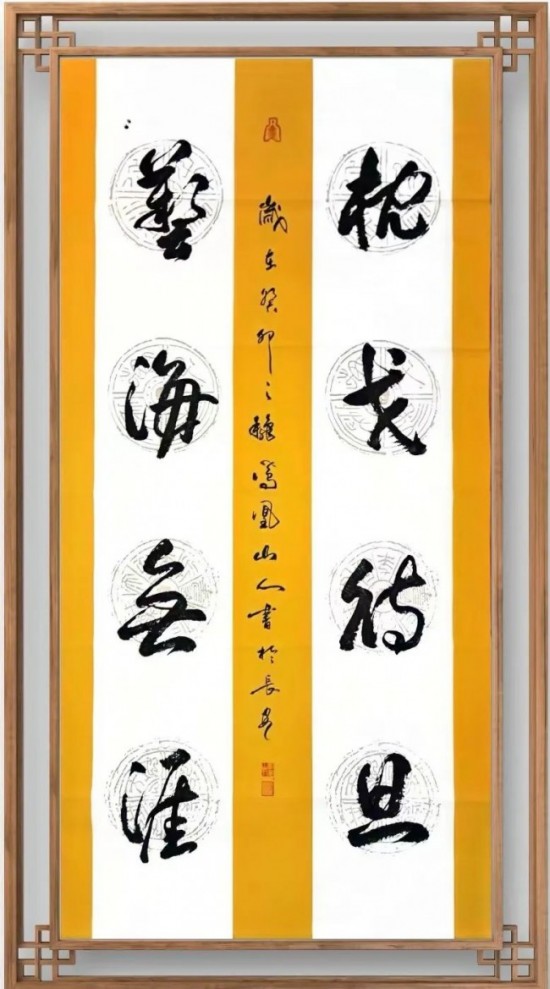 枕戈待旦
藝海無涯
歲在癸卯之秋鳳凰山人書於長安